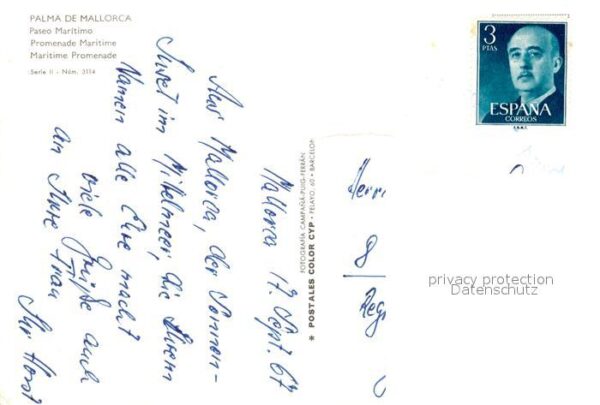 PALMA DE MALLORCA
Paseo Marítimo
Promenade Maritime
Maritime Promenade
Serie II - Núm. 3114
Mallorca 17. Sept. 67
Aus Mallorca, der Sonnen-
Insel im Mittelmeer, die Ihrem
Namen alle Ehre macht
viele Grüße auch
an Ihre Frau
Ihr Horst
FOTOGRAFIA CAMPAÑÁ-PUIG-FERRÁN
* POSTALES COLOR CYP - PELAYO, 60 - BARCELON
Herrn
8
Reg
3
PTAS
ESPAÑA
CORREOS
privacy protection
Datenschutz